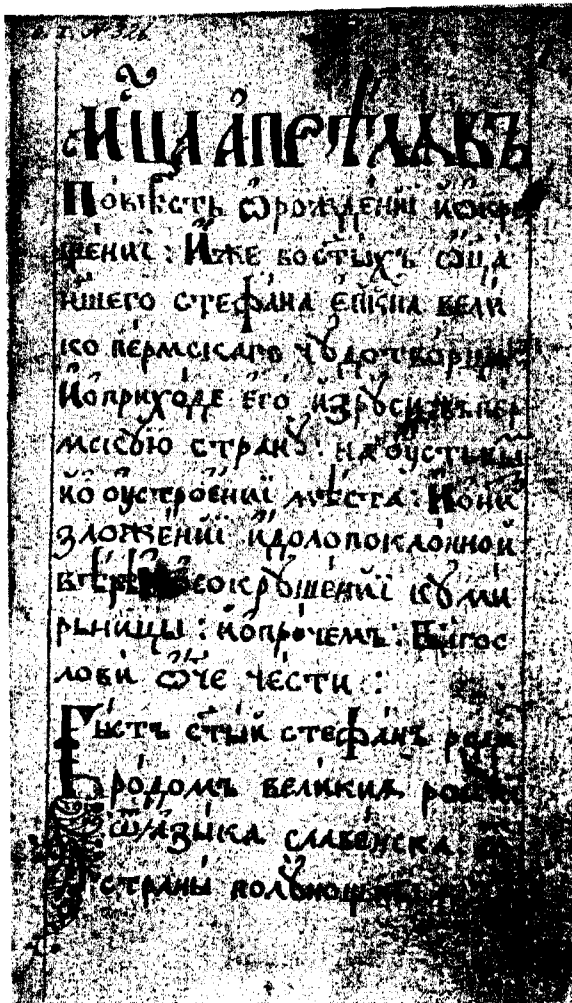 м҃ца апрѣлѧ въ
Повѣсть ѡ рождении и ѡ кре
щении : Иже во ст҃ыхъ ѡц҃а
ншего стефана еп҃кпа вели
ко пермскаго чꙋдотворца
И ѡ приходе его из рꙋси въ пер
мскꙋю странꙋ : на ѹсть вы
ко ѹстроении мѣста : И о ни
зложении идолопоклонной
сокрꙋшении кꙋми
рьницы : и о прочемъ : Бл҃гос
лови ѿче чести :
Бысть ст҃ый стефанъ
родомъ великиѧ
ѿ ѧзыка славенска
страны полꙋнощныѧ